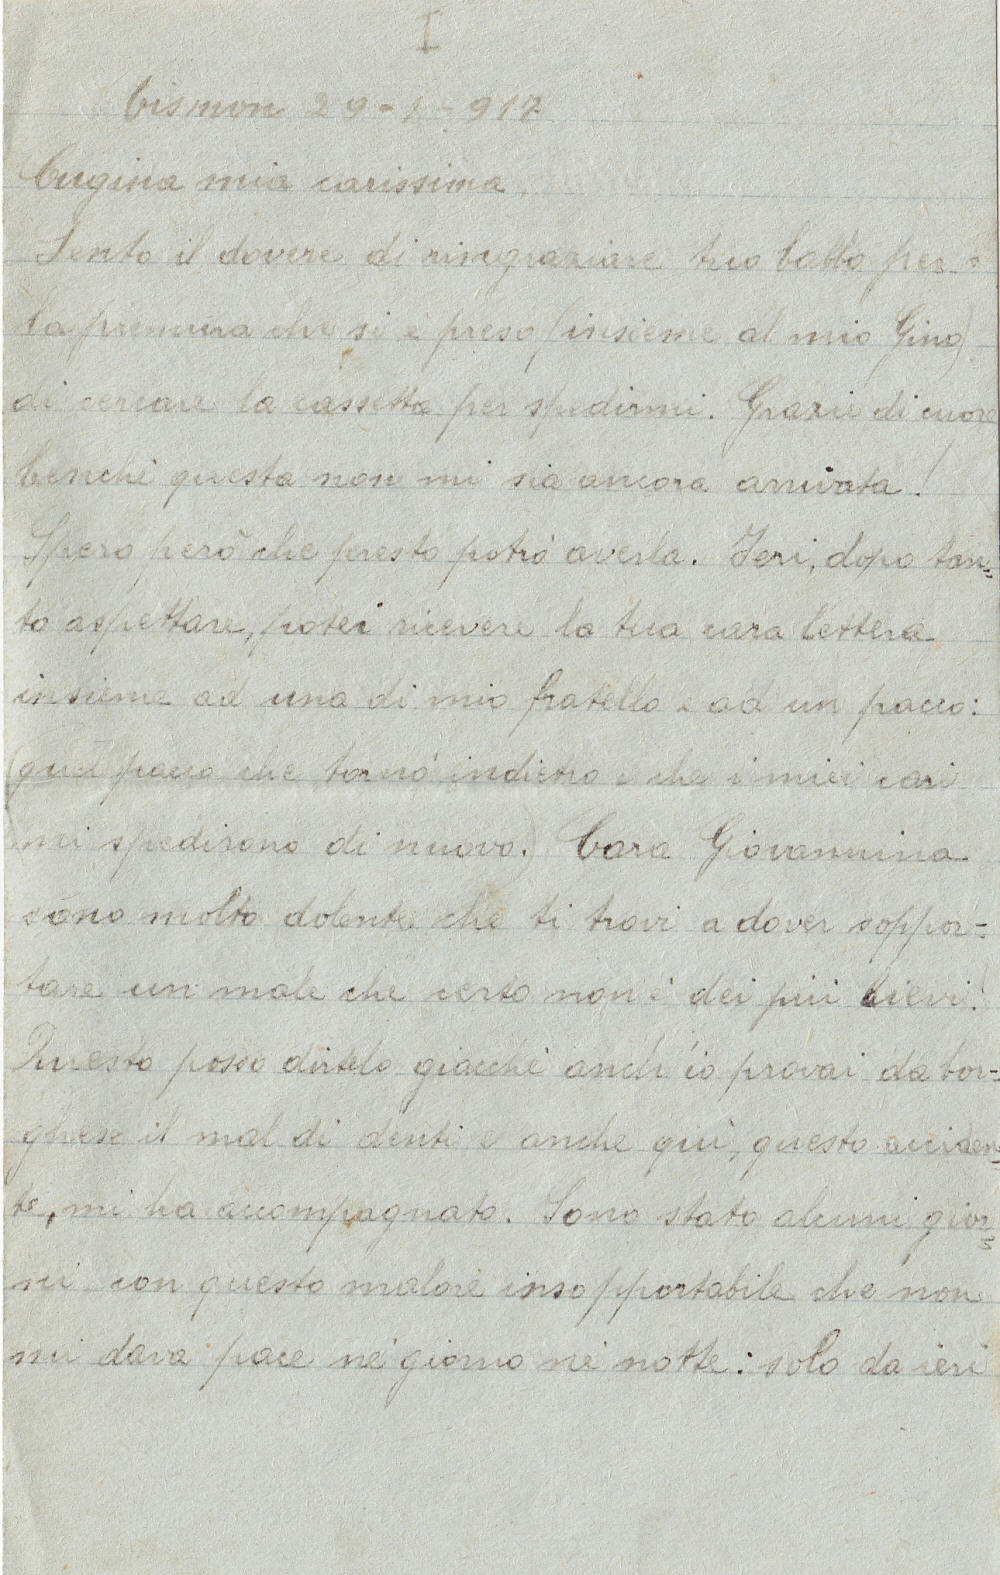 I
Cismon 29-1-917
Cugina mia carissima
Sento il dovere di ringraziare tuo babbo per
la premura che si è preso (insieme al mio Gino)
di cercare la cassetta per spedirmi. Grazie di cuore
benchè questa non mi sia ancora arrivata!
Spero però che presto potrò averla. Ieri, dopo tan=
to aspettare, potei ricevere la tua cara lettera
insieme ad una di mio fratello e ad un pacco:
(quel pacco che tornò indietro e che i miei cari
mi spedirono di nuovo.) Cara Giovannina
sono molto dolente che ti trovi a dover soppor=
tare un male che certo non è dei più lievi!
Questo posso dirtelo giacchè anch'io provai da bor=
ghese il mal di denti e anche quì, questo acciden=
te, mi ha accompagnato. Sono stato alcuni gior=
ni con questo malore insopportabile che non
mi dava pace nè giorno nè notte: solo da ieri